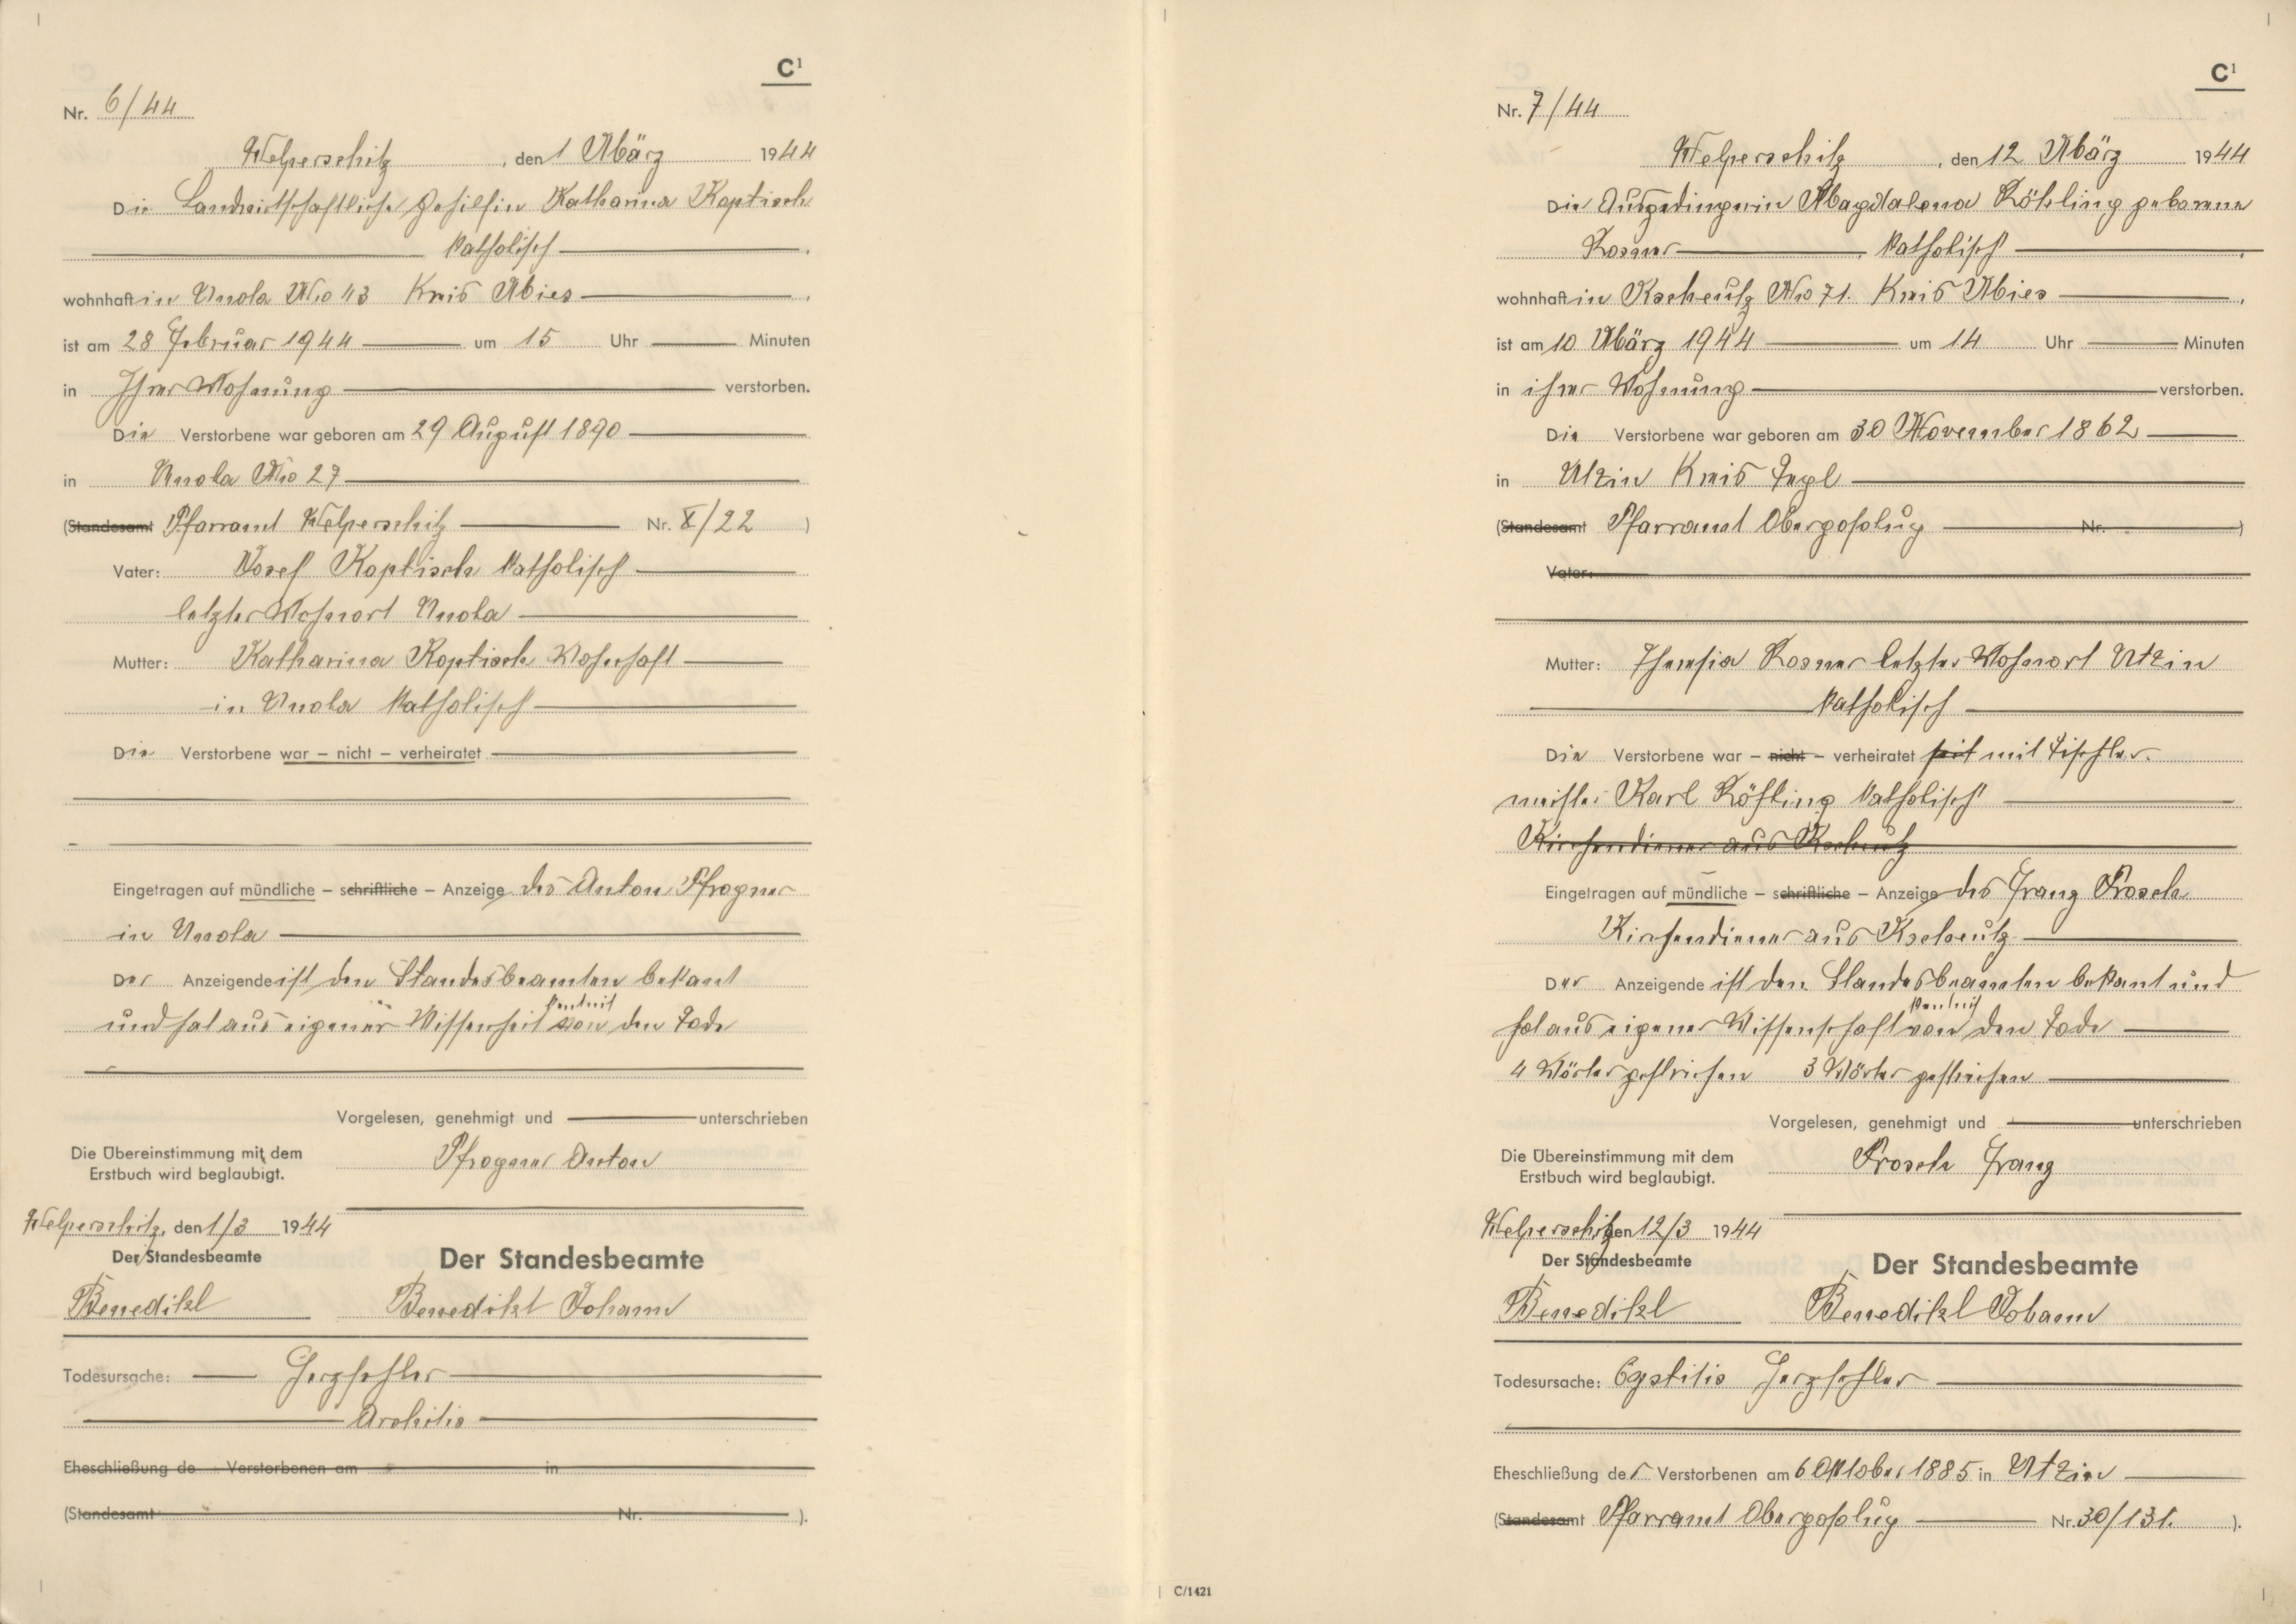 C¹
Nr. 6/44
Welperschitz, den 1 März 1944
Die Landwirtschaftliche Gehilfin Katharina Koptisch
katholisch
wohnhaft in Unola No 43 Kreis Mies
ist am 28 Februar 1944 um 15 Uhr Minuten
in Ihrer Wohnung verstorben.
Die Verstorbene war geboren am 29 August 1890
in Unola No 27
(Standesamt Pfarramt Welperschitz Nr. X/22 )
Vater: Josef Koptisch katholisch
letzter Wohnort Unola
Mutter: Katharina Koptisch Wohnhaft
in Unola katholisch
Die Verstorbene war – nicht – verheiratet
Eingetragen auf mündliche – schriftliche – Anzeige des Anton Pfrogner
in Unola
Der Anzeigende ist den Standesbeamten bekant
und hat aus eigener Wissenheit von kentnis den Tode
Vorgelesen, genehmigt und unterschrieben
Die Übereinstimmung mit dem
Erstbuch wird beglaubigt.
Pfrogner Anton
Welperschitz, den 1/3 1944
Der Standesbeamte
Der Standesbeamte
Benedikt
Benedikt Johann
Todesursache: Herzfehler
Eheschließung de Verstorbenen am in
(Standesamt Nr. ).
C¹
Nr. 7/44
Welperschitz, den 12 März 1944
Die Ausgedingerin Magdalena Röhling geborene
Rosner katholisch
wohnhaft in Kscheutz No 71. Kreis Mies
ist am 10 März 1944 um 14 Uhr Minuten
in ihrer Wohnung verstorben.
Die Verstorbene war geboren am 30 November 1862
in Utzin Kreis Tepl
(Standesamt Pfarramt Obergoßolug Nr. )
Vater:
Mutter: Theresia Rosner letzter Wohnort Utzin
katholisch
Die Verstorbene war – nicht – verheiratet seit mit Tischler-
meister Karl Röhling katholisch
Kirchendiener aus Kscheutz
Eingetragen auf mündliche – schriftliche – Anzeige des Franz Prosch
Kirchendiener aus Kscheutz
Der Anzeigende ist den Standesbeamten bekant und
hat aus eigener Wissenschaft von kentnis den Tode
4 Wörter gestrichen 3 Wörter gestrichen
Vorgelesen, genehmigt und unterschrieben
Die Übereinstimmung mit dem
Erstbuch wird beglaubigt.
Prosch Franz
Welperschitz den 12/3 1944
Der Standesbeamte
Der Standesbeamte
Benedikt
Benedikt Johann
Todesursache: Herzfehler
Eheschließung der Verstorbenen am 6 Oktober 1885 in Utzin
(Standesamt Pfarramt Obergoßolug Nr. 30/131. ).
C/1421